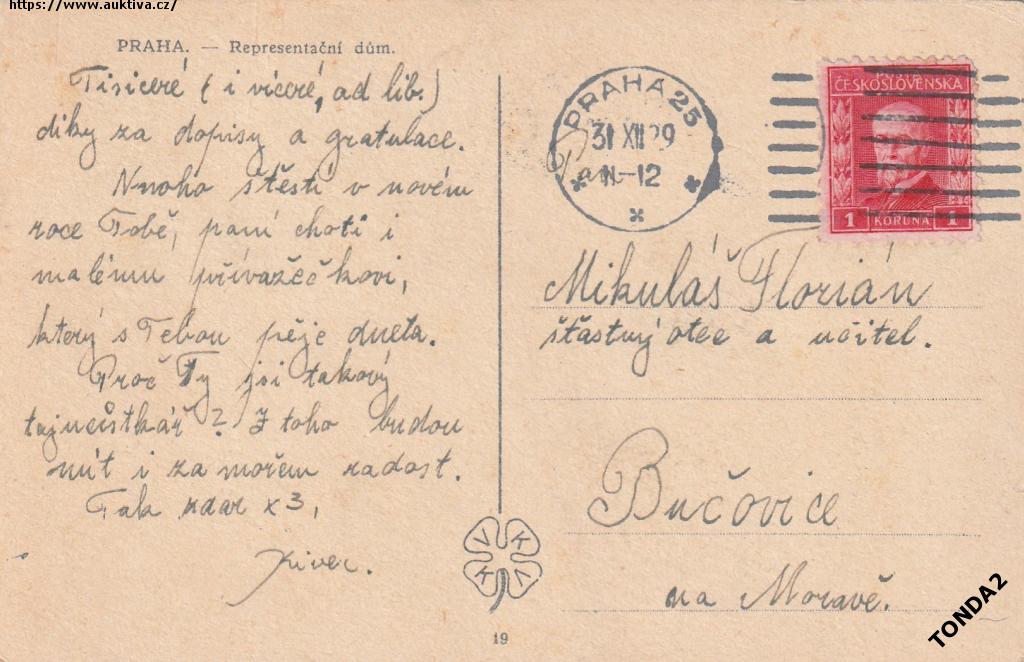 https://www.auktiva.cz/
PRAHA. — Representační dům.
Tisiceré (i víceré, ad lib.)
díky za dopisy a gratulace.
Mnoho štěstí v novém
roce Tobě, paní choti i
malému přívažečkovi,
který s Tebou pěje dueta.
Proč Ty jsi takový
tajnůstkář? Z toho budou
mít i za mořem radost.
Tak zdar x3,
PRAHA 25
31 XII 29
11-12
POŠTA
ČESKOSLOVENSKÁ
1 KORUNA 1
Pan
Mikuláš Florián
šťastný otec a učitel.
Bučovice
na Moravě.
V K K V
19
TONDA2